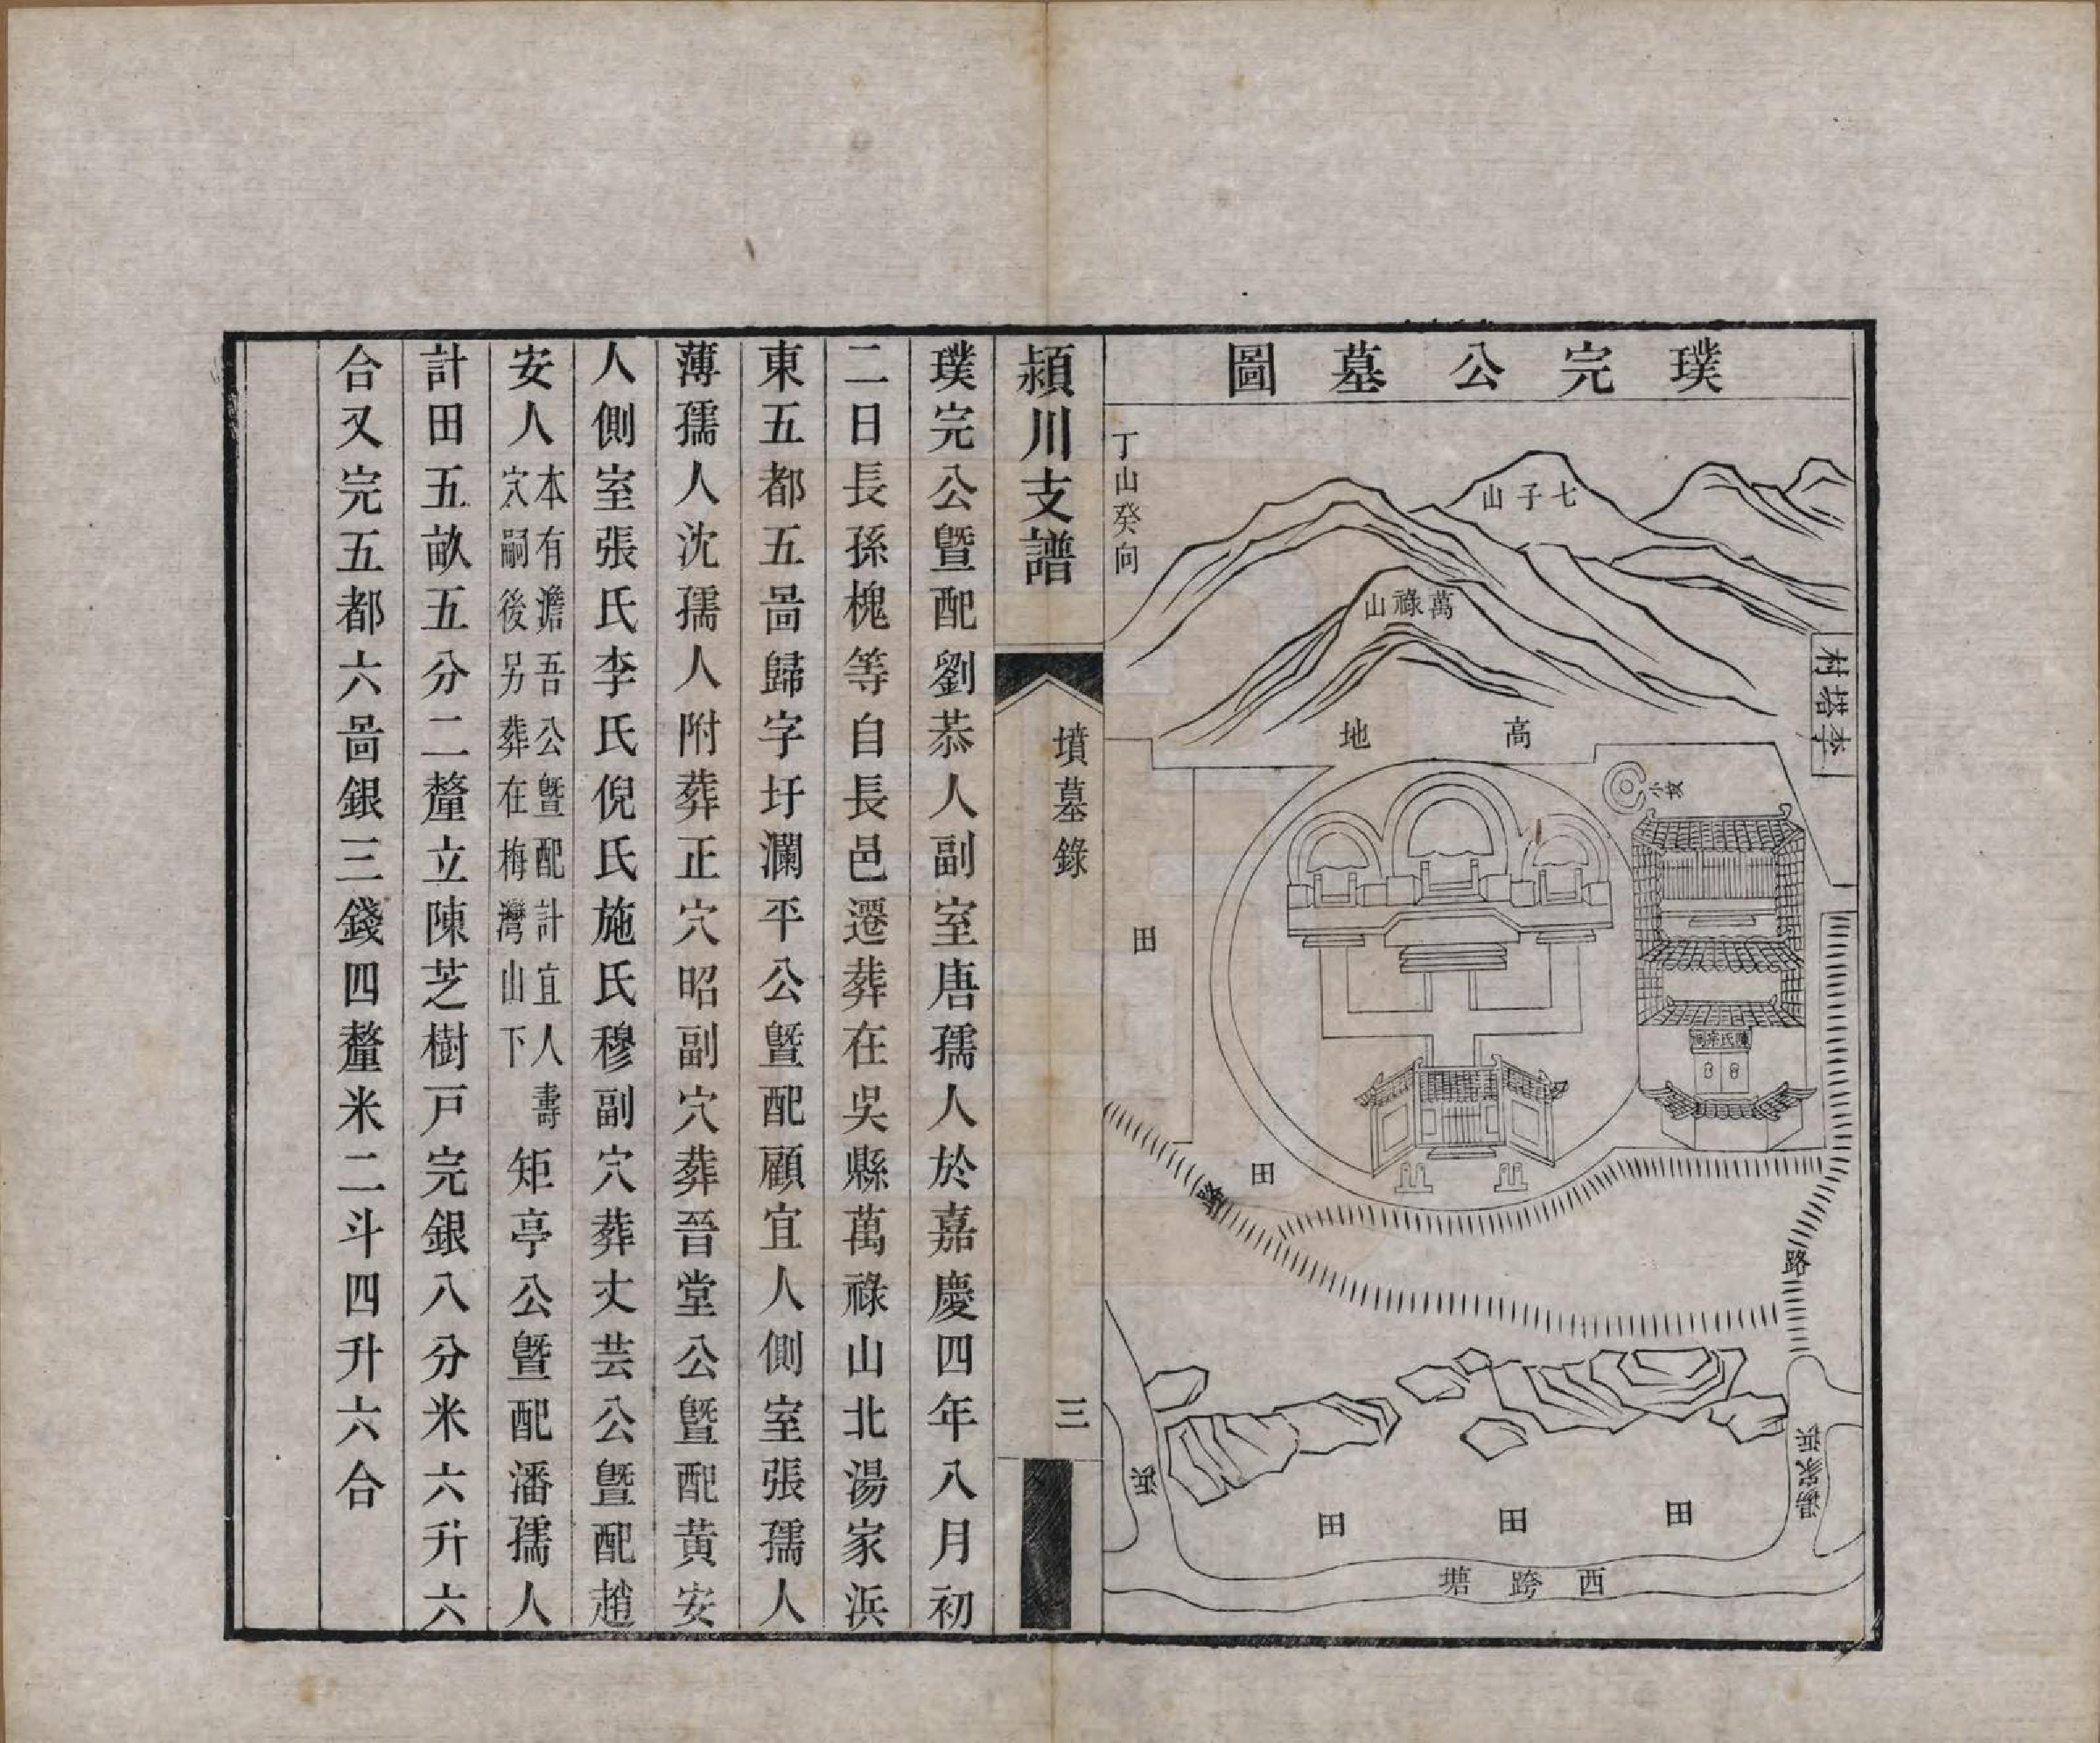 璞完公墓圖
丁山癸向
七子山
萬祿山
李塔村
高地
小墳
陳氏宗祠
田
田
路
路
浜
湯家浜
田田田
西跨塘
潁川支譜
墳墓錄
三
璞完公暨配劉恭人副室唐孺人於嘉慶四年八月初
二日長孫槐等自長邑遷葬在吳縣萬祿山北湯家浜
東五都五啚歸字圩瀾平公暨配顧宜人側室張孺人
薄孺人沈孺人附葬正穴昭副穴葬晉堂公暨配黃安
人側室張氏李氏倪氏施氏穆副穴葬丈芸公暨配趙
安人本有澹吾公暨配計宜人壽穴嗣後另葬在梅灣山下矩亭公暨配潘孺人
計田五畝五分二釐立陳芝樹戸完銀八分米六升六
合又完五都六啚銀三錢四釐米二斗四升六合